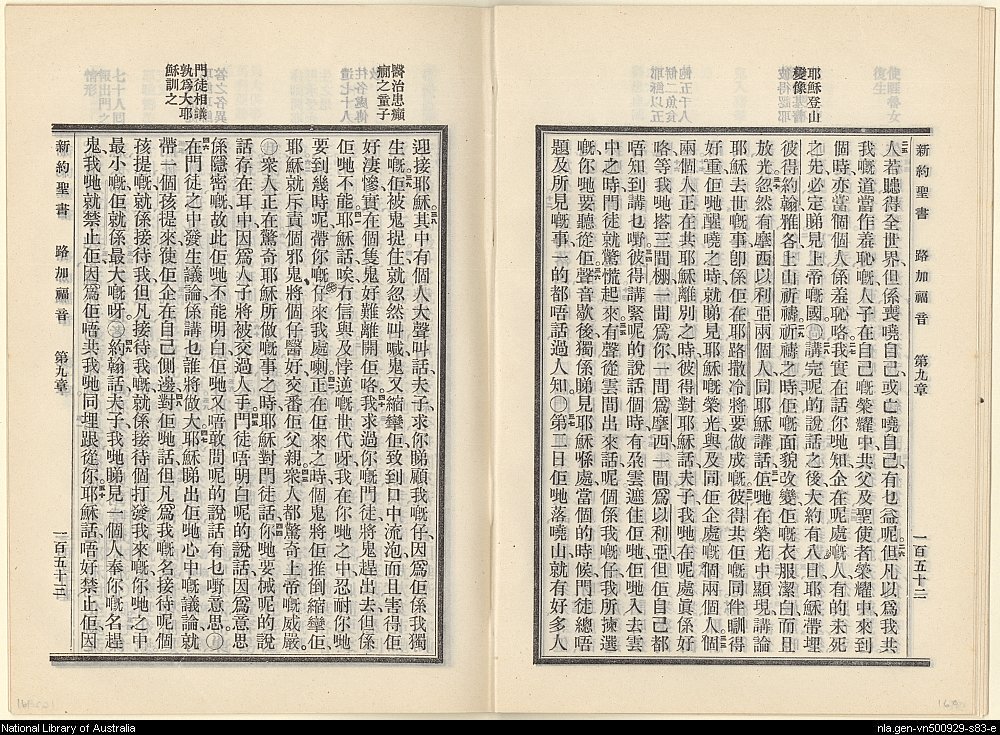 耶穌登山
變像
新約聖書 路加福音 第九章 一百五十二
人若贃得全世界但係喪嘵自己或亡嘵自己有乜益呢但凡以爲我共
我嘅道當作羞恥嘅人子在自己嘅榮耀中共父及聖使者榮耀中來到
個時亦當個個人係羞恥咯我實在話你哋知企在呢處嘅人有的未死
之先必定睇見上帝嘅國講完呢的說話之後大約有八日耶穌帶埋
彼得約翰雅各上山祈禱祈禱之時佢嘅面貌改變佢嘅衣服潔白而且
放光忽然有摩西以利亞兩個人同耶穌講話佢哋在榮光中顯現講論
耶穌去世嘅事卽係佢在耶路撒冷將要做成嘅彼得共佢嘅同伴瞓得
好重佢哋醒嘵之時就睇見耶穌嘅榮光與及同佢企處嘅個兩個人個
兩個人正在共耶穌離別之時彼得對耶穌話夫子我哋在呢處眞係好
咯等我哋搭三間棚一間爲你一間爲摩西一間爲以利亞但佢自己都
唔知到講乜嘢彼得講緊呢的說話個時有朵雲遮住佢哋佢哋入去雲
中之時門徒就驚慌起來有聲從雲間出來話呢個係我嘅仔我所揀選
嘅你哋要聽從佢聲音歇後獨係睇見耶穌喺處當個的時候門徒總唔
題及所見嘅事一的都唔話過人知第二日佢哋落嘵山就有好多人
醫治患癲
癇之童子
門徒相議
孰爲大耶
穌訓之
迎接耶穌其中有個人大聲叫話夫子求你睇顧我嘅仔因爲佢係我獨
生嘅佢被鬼捉住就忽然叫喊鬼又縮攣佢致到口中流泡而且害得佢
好淒慘實在個隻鬼好難離開佢咯我求過你嘅門徒將鬼趕出去但係
佢哋不能耶穌話唉冇信與及悖逆嘅世代呀我在你哋之中忍耐你哋
要到幾時呢帶你嘅仔來我處喇正在佢來之時個鬼將佢推倒縮攣佢
耶穌就斥責個邪鬼將個仔醫好交番佢父親衆人都驚奇上帝嘅威嚴
衆人正在驚奇耶穌所做嘅事之時耶穌對門徒話你哋要械呢的說
話存在耳中因爲人子將被交過人手門徒唔明白呢的說話因爲意思
係隱密嘅故此佢哋不能明白佢哋又唔敢問呢的說話有乜嘢意思
在門徒之中發生議論係講乜誰將做大耶穌睇出佢哋心中嘅議論就
帶一個孩提來使佢企在自己側邊對佢哋話但凡爲我嘅名接待呢個
孩提嘅就係接待我但凡接待我嘅就係接待個打發我來嘅你哋之中
最小嘅佢就係最大嘅呀約翰話夫子我哋睇見一個人奉你嘅名趕
鬼我哋就禁止佢因爲佢唔共我哋同埋跟從你耶穌話唔好禁止佢因
新約聖書 路加福音 第九章 一百五十三
National Library of Australia
nla.gen-vn500929-s83-e